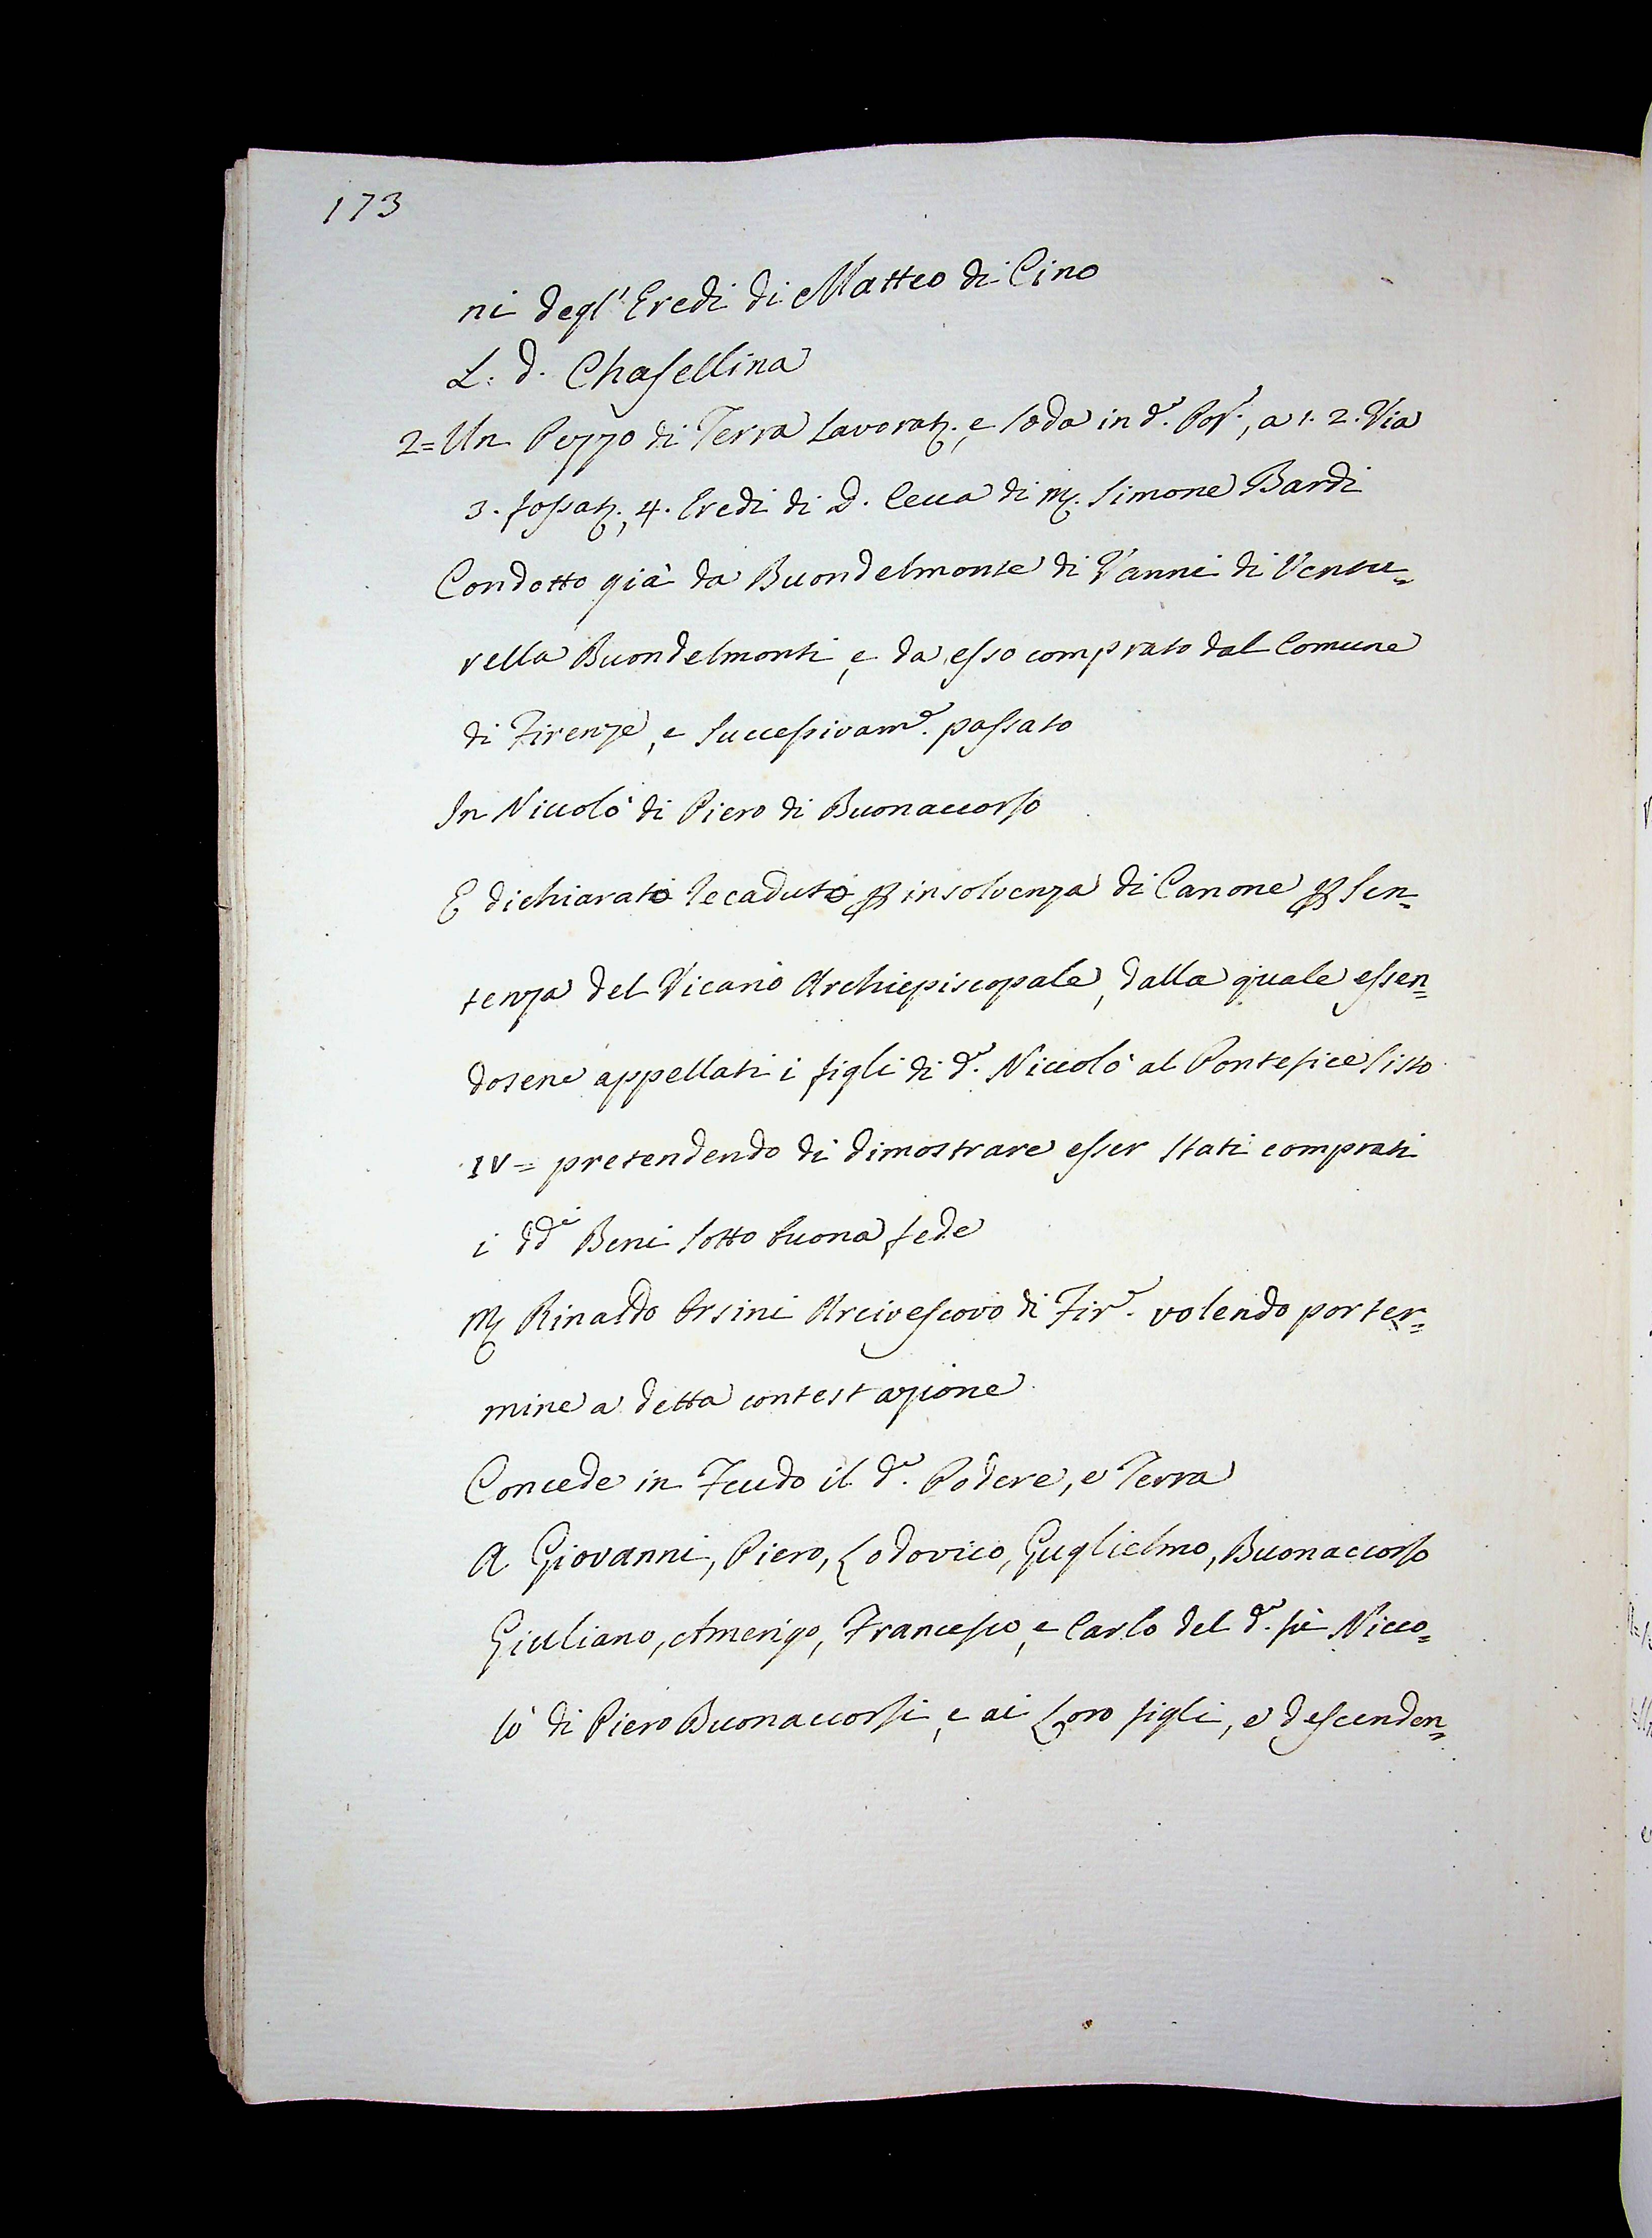 173
ni degl' Eredi di Matteo di Cino
L. d. Chasellina
2= Un Pezzo di Terra Lavorat.a e soda in d.o Pop.o, a 1. 2. Via
3. fossat., 4. Eredi di D. Cecca di M. Simone Bardi
Condotto già da Buondelmonte di Vanni di Ventu=
rella Buondelmonti, e da esso comprato dal Comune
di Firenze, e successivam.e passato
In Niccolò di Piero di Buonaccorso
E dichiarato decaduto p insolvenza di Canone p Sen=
tenza del Vicario Archiepiscopale, dalla quale essen=
dosene appellati i figli di d.o Niccolò al Pontefice Sisto
IV= pretendendo di dimostrare esser stati comprati
i dd.i Beni sotto buona fede
M Rinaldo Orsini Arcivescovo di Fir.e volendo por ter=
mine a detta contestazione
Concede in Feudo il d.o Podere, e Terra
A Giovanni, Piero, Lodovico, Guglielmo, Buonaccorso
Giuliano, Amerigo, Francesco, e Carlo del d.o fù Nicco=
lò di Piero Buonaccorsi, e ai Loro figli, e descenden=